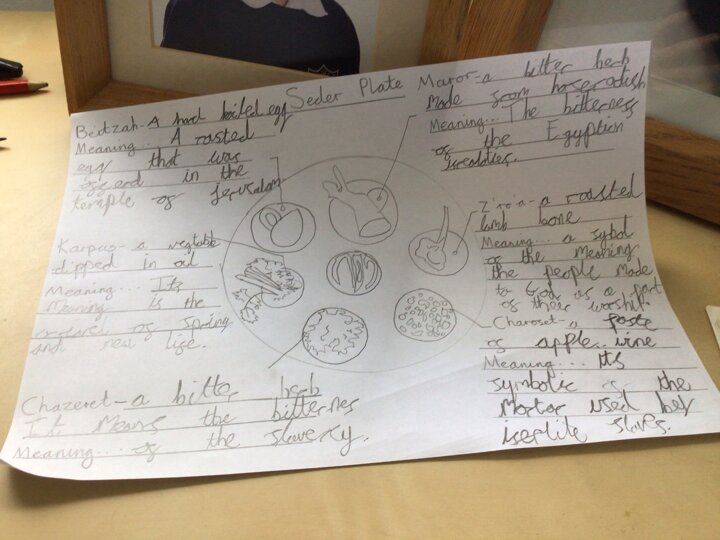 Seder Plate
Beitzah- A hard boiled egg
Meaning... A rosted
egg that was
offerd in the
temple of jerusalam.
Maror- a bitter herb
Made from horseradish
Meaning... The bitterness
of the Egyption
Karpas- a vegtable
dipped in oil
Meaning... Its
Meaning is the
of spring
and new life.
Z'roa- a roasted
lamb bone
Meaning... a sybol
of the Meaning
the people Made
to God as a part
of their worship.
Charoset- a paste
of apple wine
Meaning... Its
symbolic of the
Mortor used by
slaves.
Chazeret- a bitter herb
It Means the bitternes
Meaning... of the slavery.